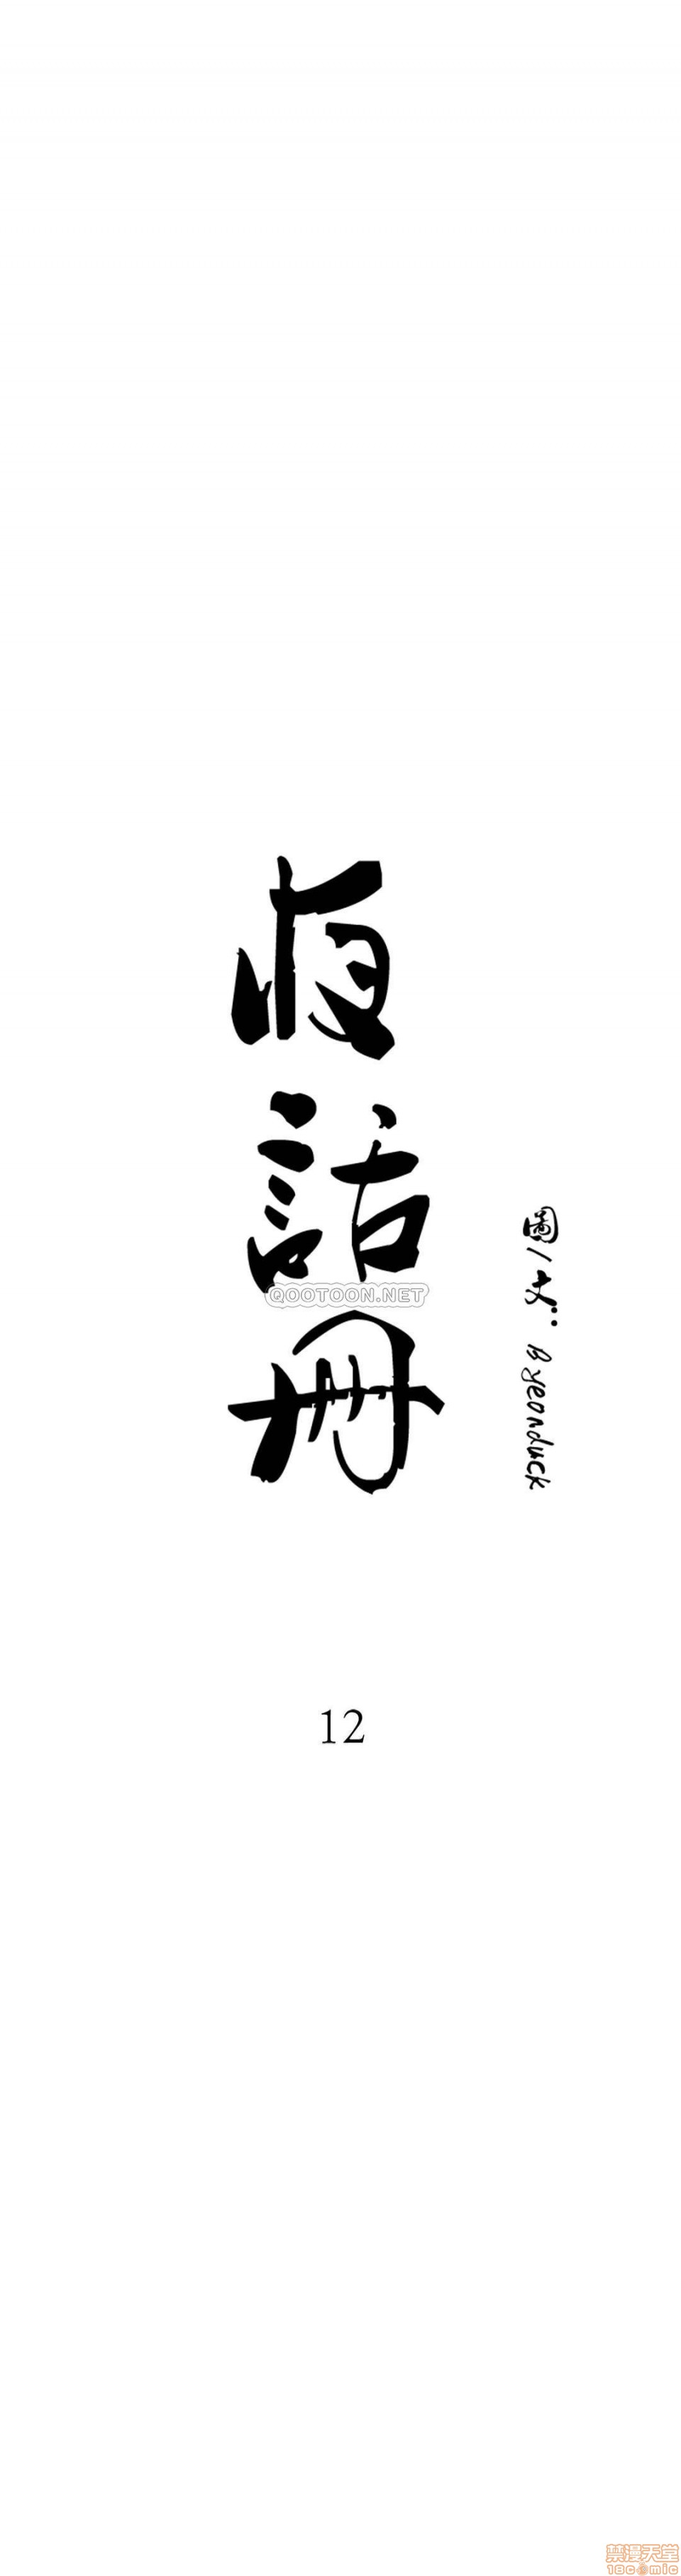 夜
話
冊
QOOTOON.NET
圖/文: Byeonduck
12
禁漫天堂
18comic